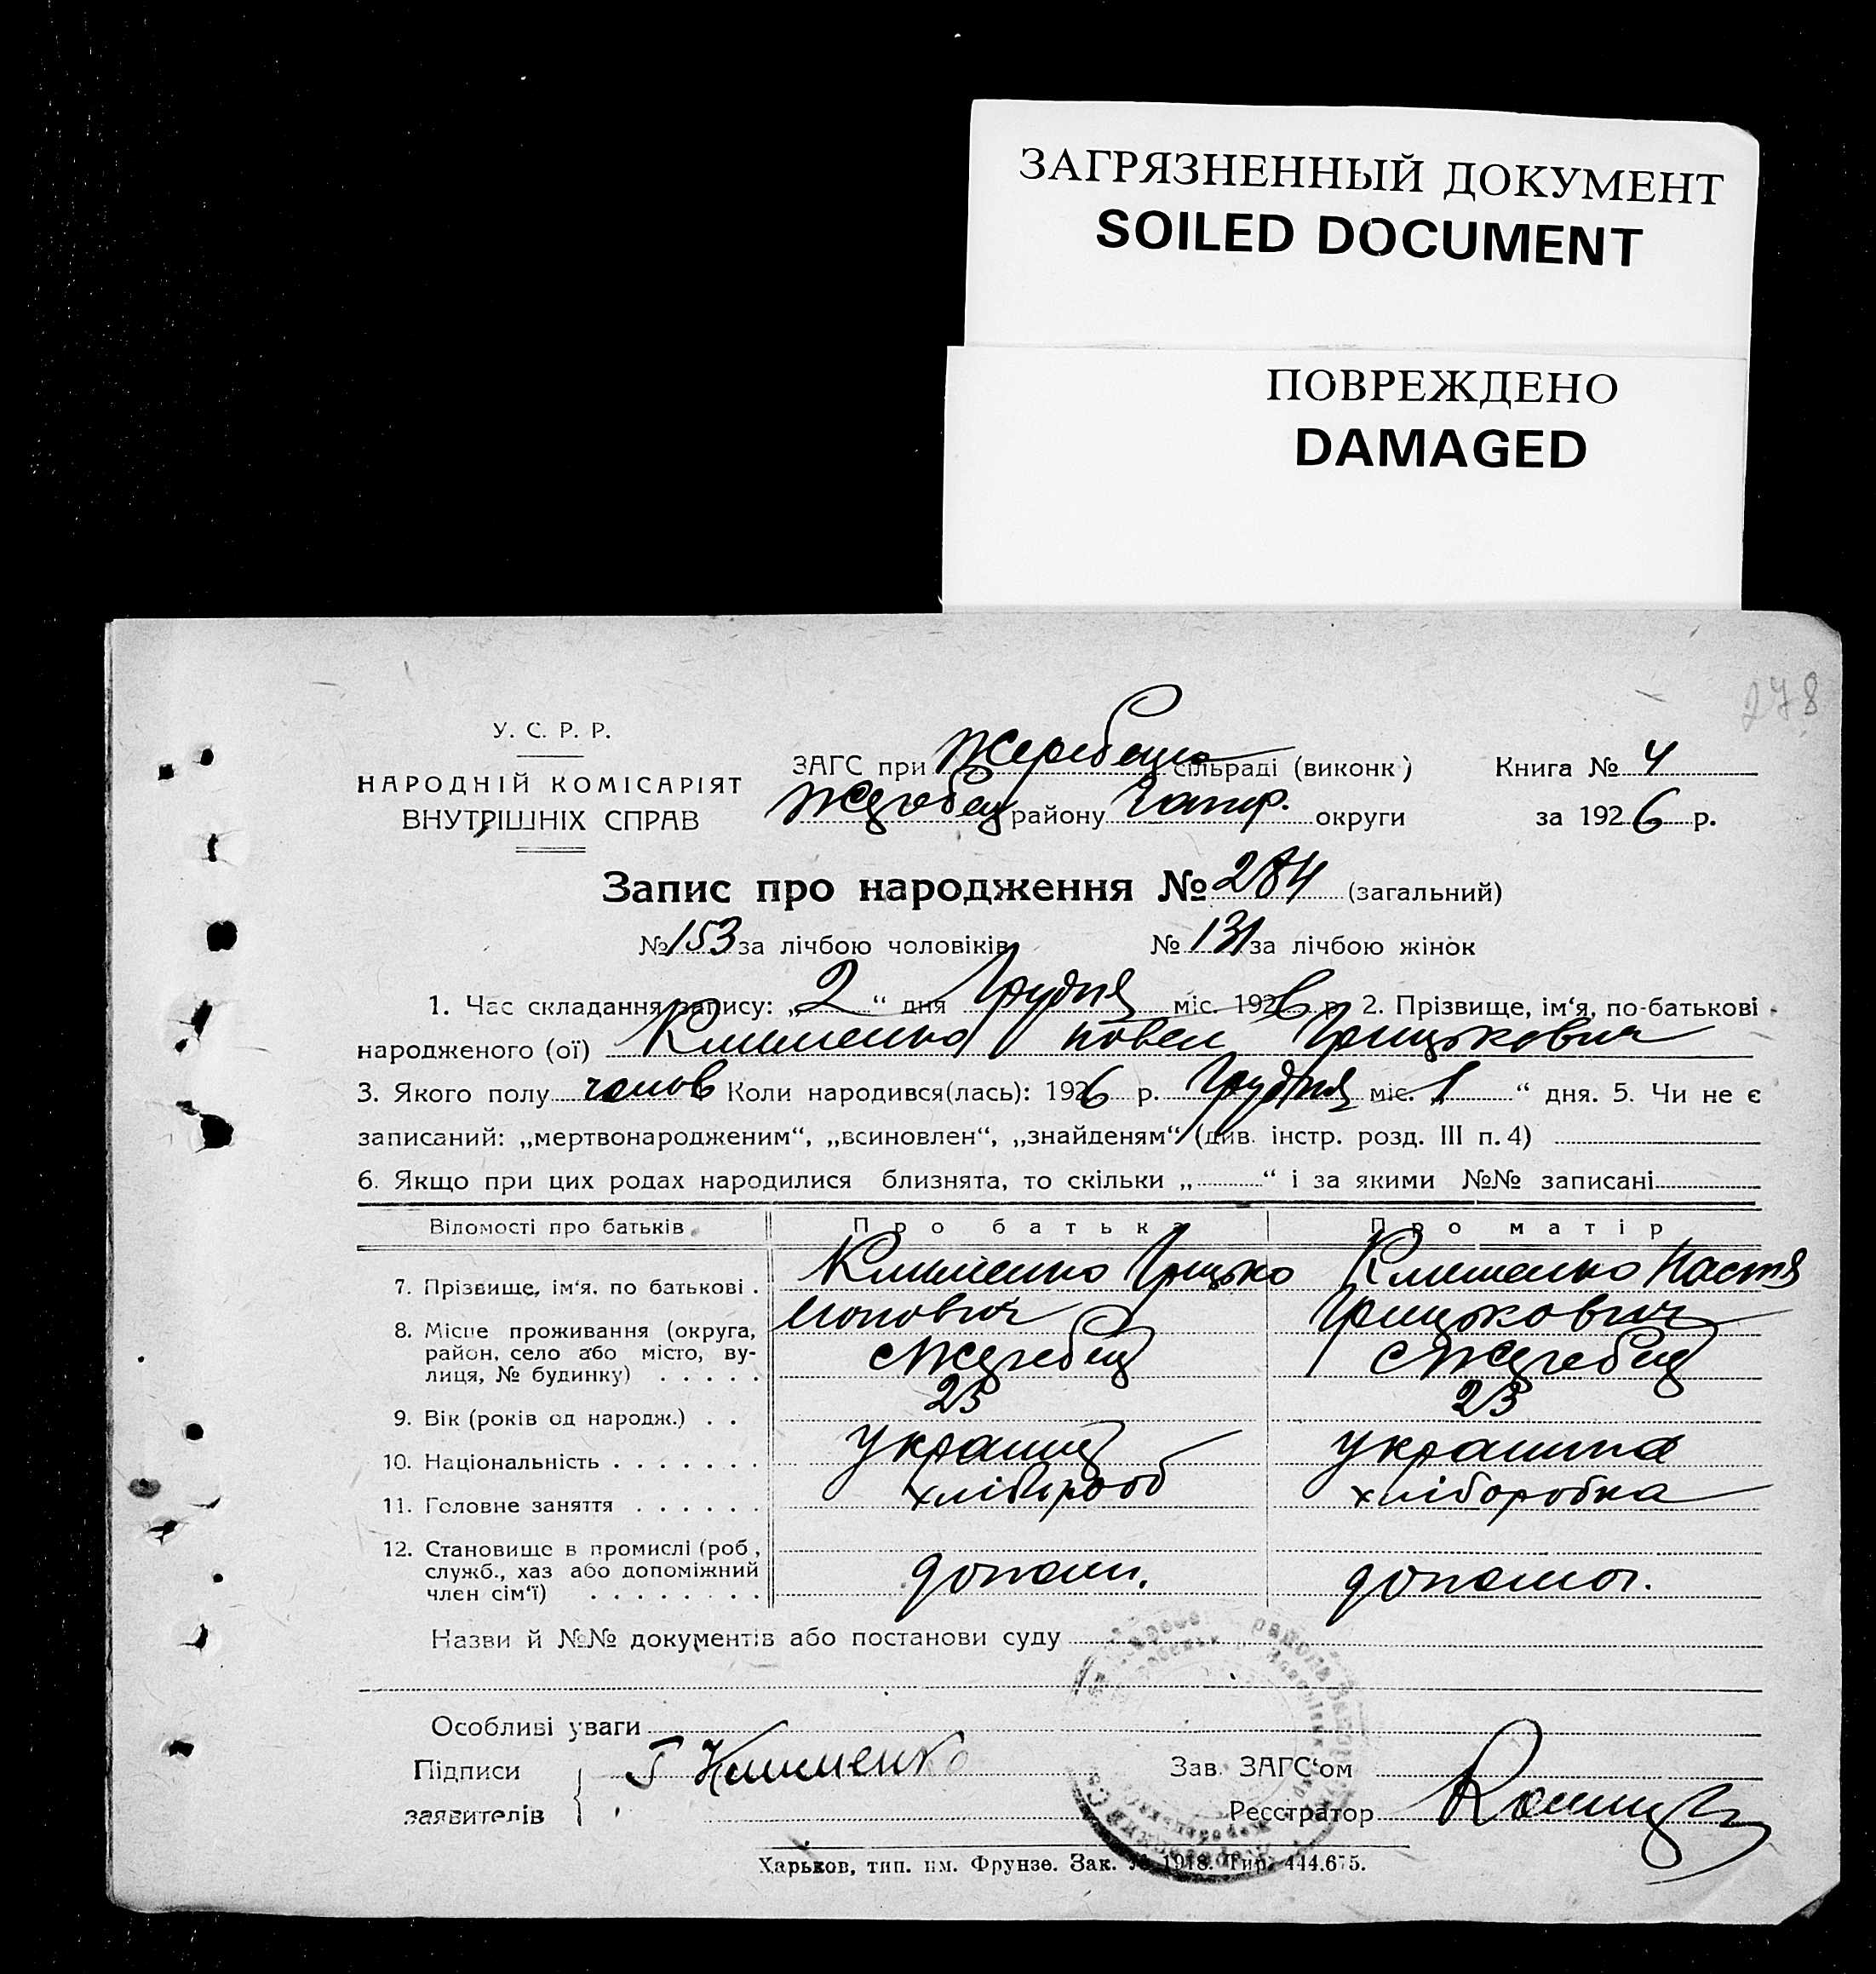 ЗАГРЯЗНЕННЫЙ ДОКУМЕНТ
SOILED DOCUMENT
ПОВРЕЖДЕНО
DAMAGED
278
У. С. Р. Р.
НАРОДНІЙ КОМІСАРІЯТ
ВНУТРІШНІХ СПРАВ
ЗАГС при сільраді (виконк)
Жеребец району Запор. округи
Книга № 4
за 1926 р.
Запис про народження № 284 (загальний)
№ 153 за лічбою чоловіків № 131 за лічбою жінок
1. Час складання запису: „2“ дня Грудня міс. 1926 р. 2. Прізвище, ім‘я, по-батькові
народженого (ої) Клименко Павел Грицькович
3. Якого полу чолов Коли народився(лась): 1926 р. Грудня міс. „1“ дня. 5. Чи не є
записаний: „мертвонародженим“, „всиновлен“, „знайденям“ (див. інстр. розд. III п. 4)
6. Якщо при цих родах народилися близнята, то скільки „ “ і за якими №№ записані
Відомості про батьків Про батька Про матір
7. Прізвище, ім‘я, по батькові . Клименко Грицько Клименко Настя
Грицькович
8. Місце проживання (округа, район, село або місто, вулиця, № будинку) . . . . . с Жеребец с Жеребец
9. Вік (років од народж.) . . 23 23
10. Національність . . . . . . . Українец Українка
11. Головне заняття . . . . . . хлібороб хліборобка
12. Становище в промислі (роб., служб., хаз або допоміжний член сім‘ї) . . . . . . . . допом. допомог.
Назви й №№ документів або постанови суду
Особливі уваги
Підписи
заявителів
Г Клименко
Зав. ЗАГС‘ом
Реєстратор
Харьков, тип. им. Фрунзе. Зак. № 1918. Тир. 444.675.